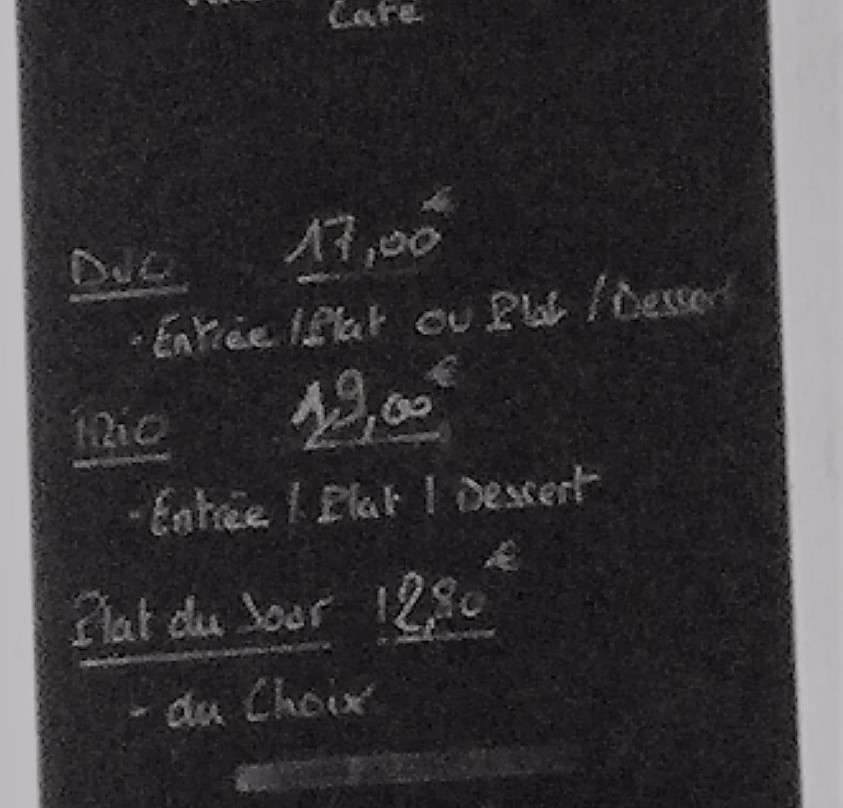 Café
DUO 17,00€
- Entrée / Plat ou Plat / Dessert
TRIO 19,00€
- Entrée / Plat / Dessert
Plat du Jour 12,80€
- au Choix